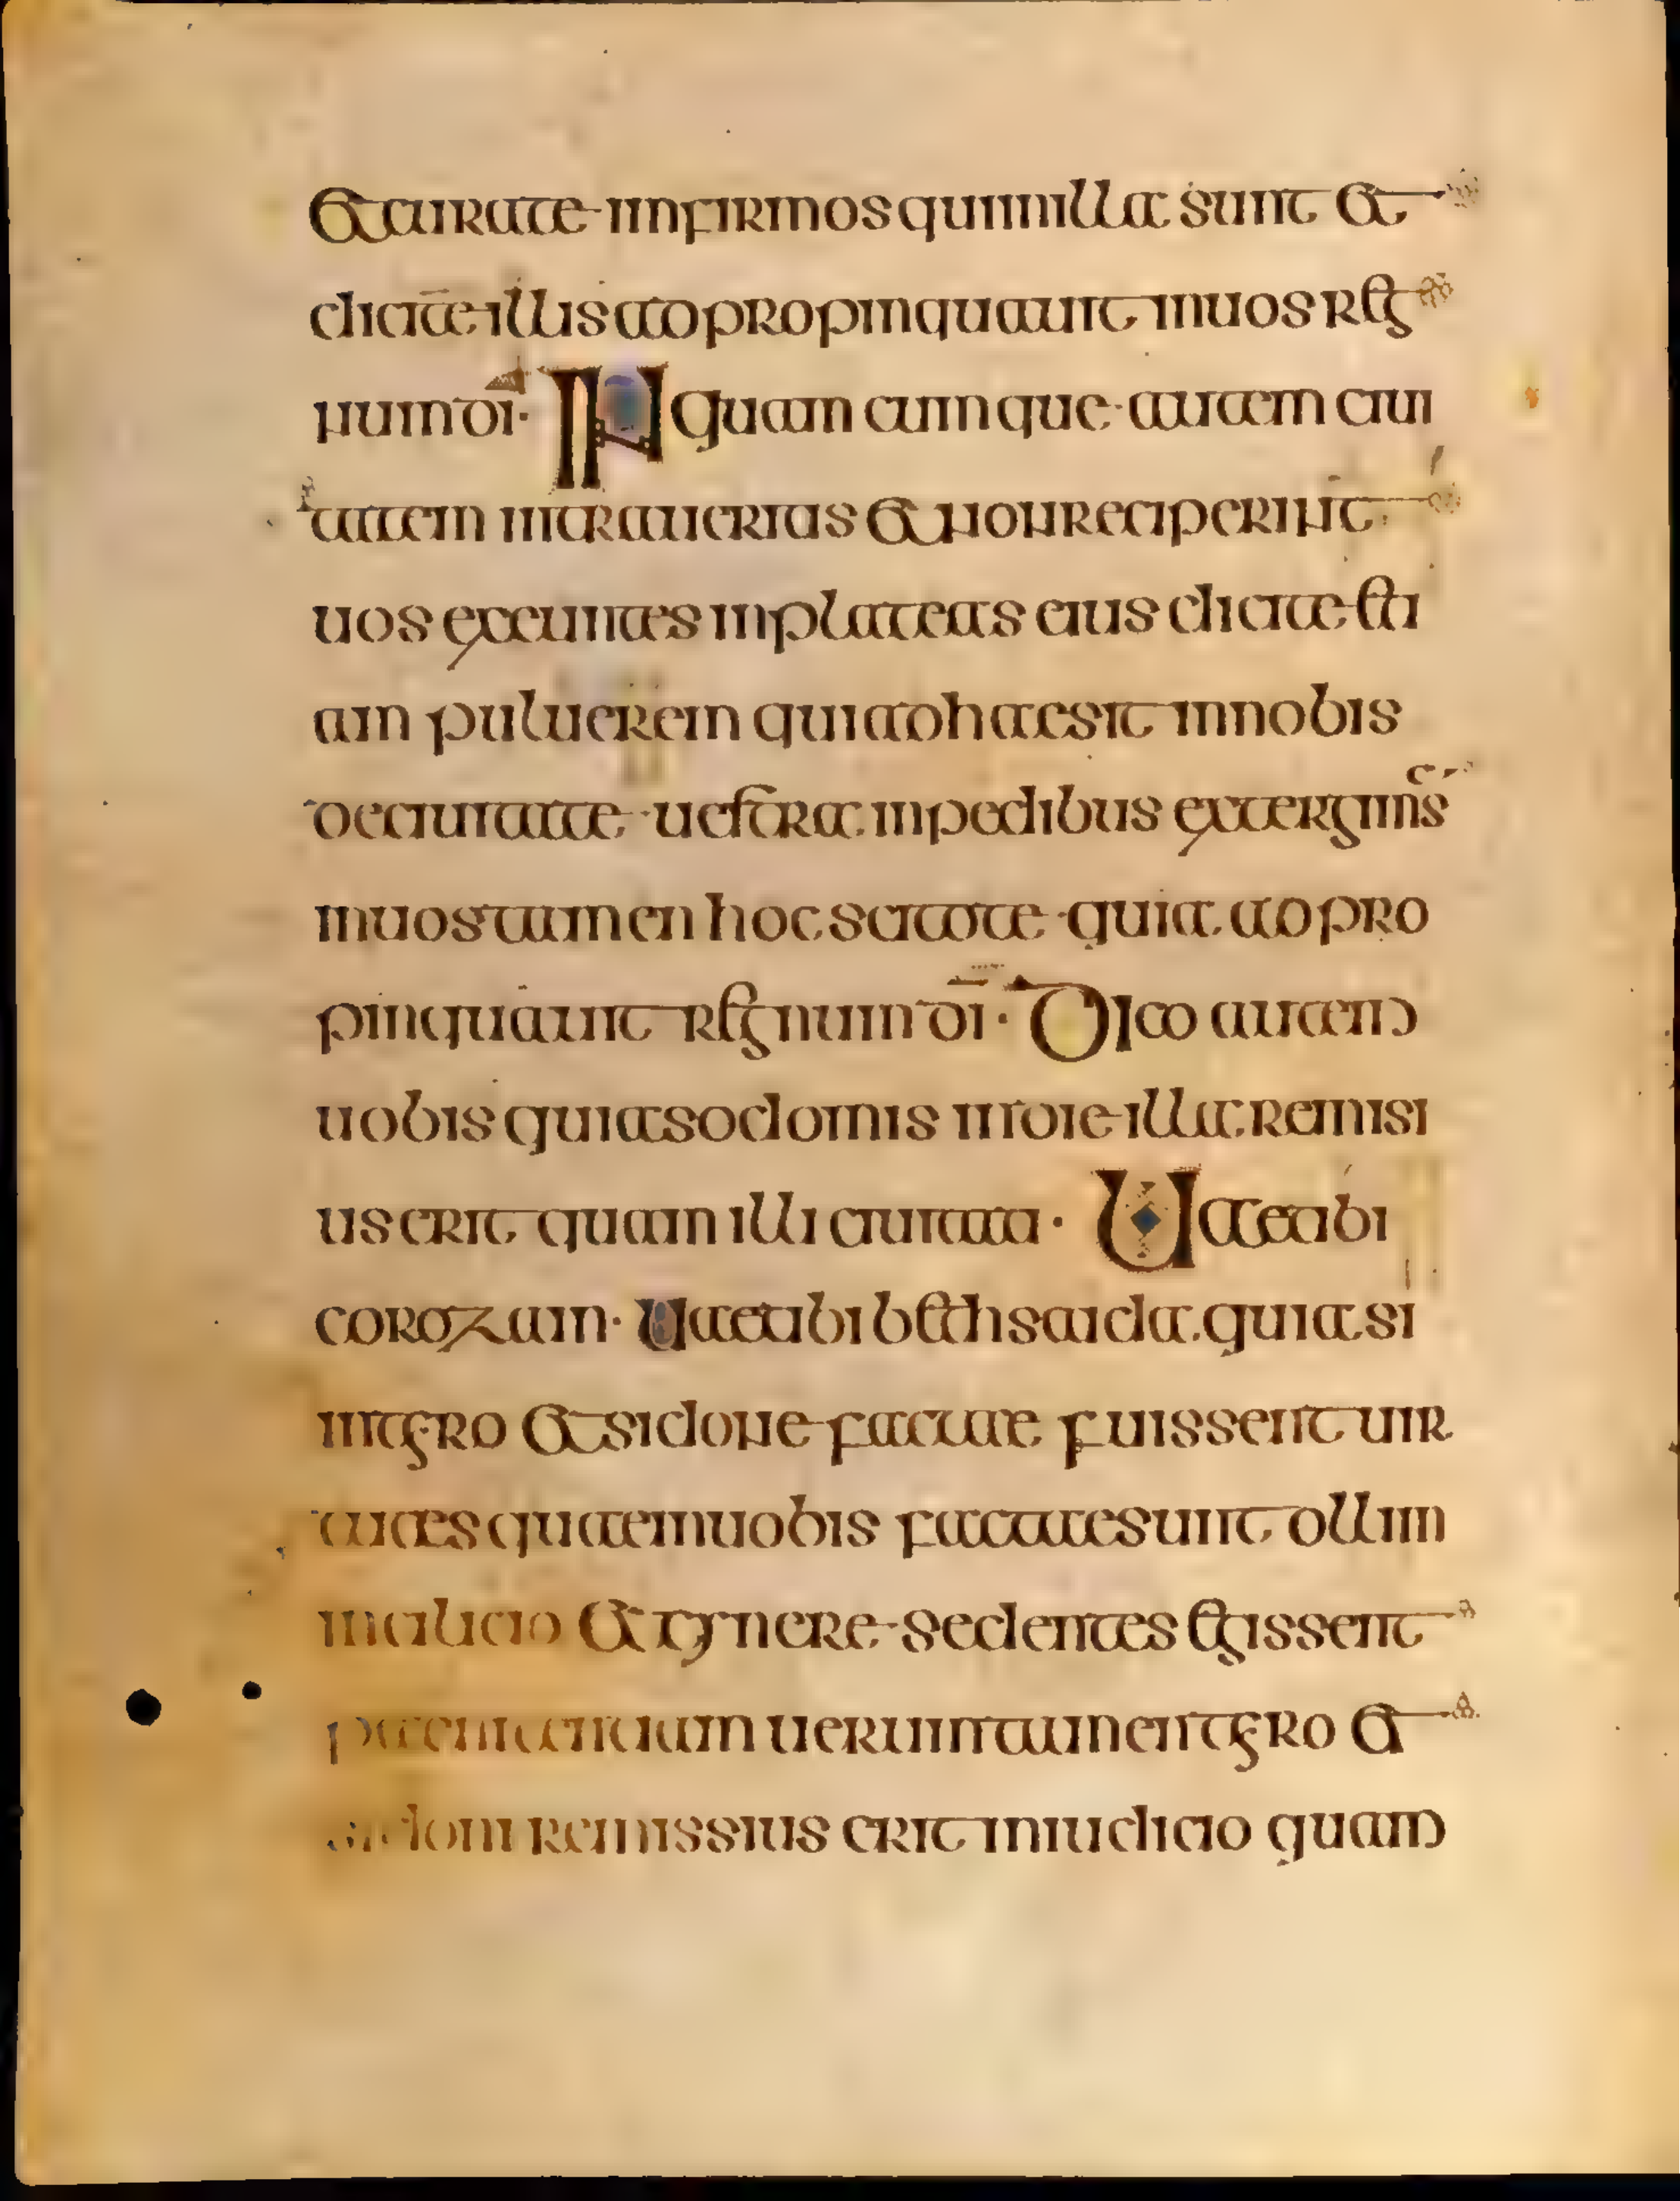 et curate infirmos qui in illa sunt et
dicite illis adpropinquauit in uos reg
num dī· IN quam cumque autem ciui
tatem intraueritis et non reciperint
uos exeuntes in plateas eius dicite eti
am puluerem qui adhaesit in nobis
de ciuitate uestra in pedibus extergim̄s
in uos tamen hoc scitote quia adpro
pinquauit regnum dī· Dico autem
uobis quia sodomis in die illa remisi
us erit quam illi ciuitati· Uae tibi
corozain· Uae tibi bethsaida quia si
in tyro et sidone factae fuissent uir
tutes quae in uobis factae sunt ollim
in cilicio et cynere sedentes egissent
paenitentiam ueruntamen tyro et
sidoni remissius erit in iudicio quam